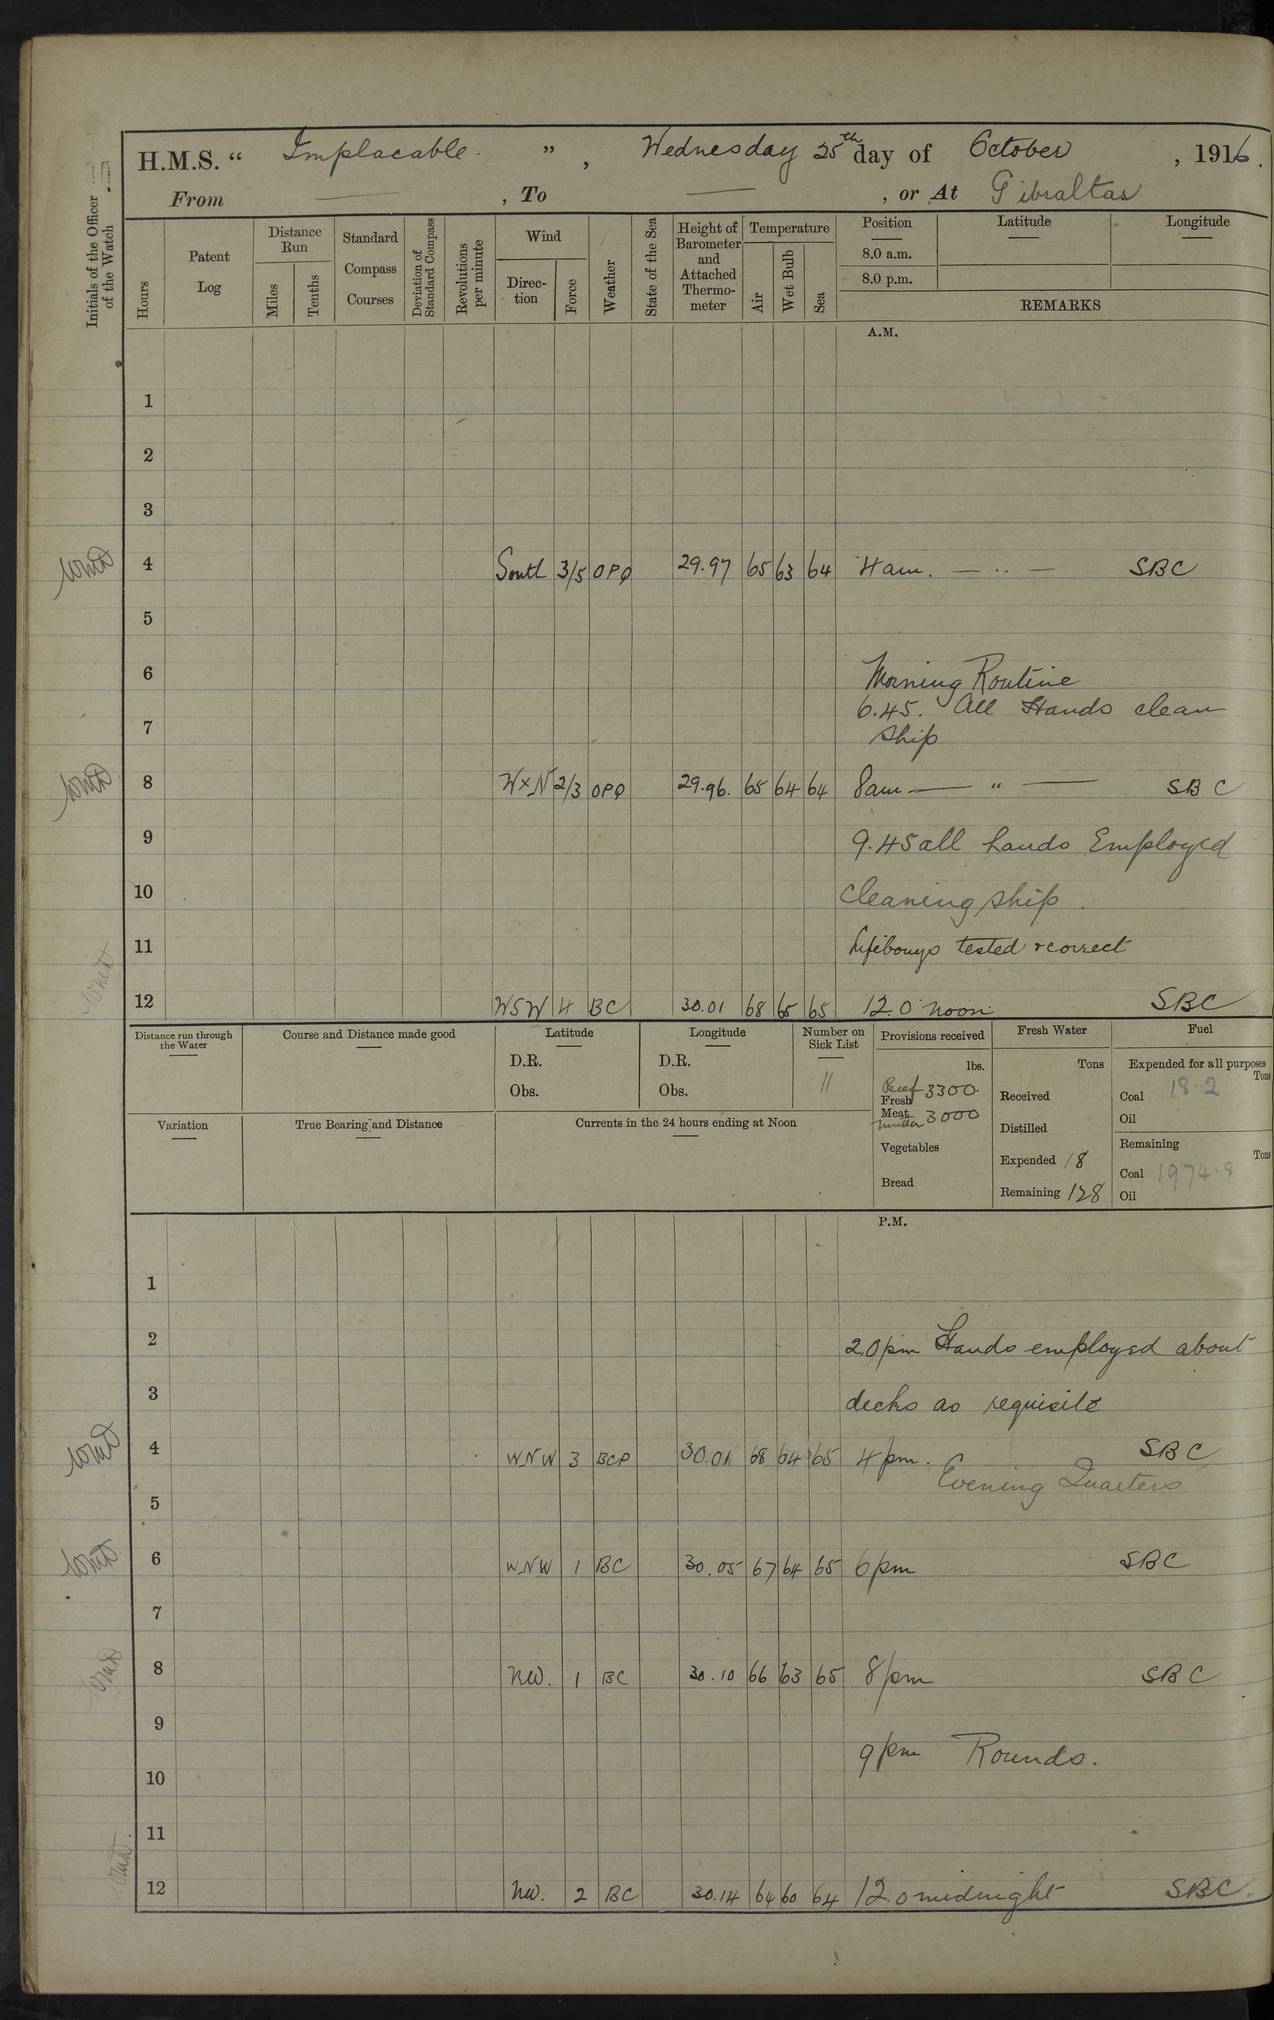 H.M.S. “ Implacable. ” , Wednesday 25th day of October , 1916.
From — , To — , or At Gibraltar
Initials of the Officer of the Watch
Hours
Patent Log
Distance Run
Miles
Tenths
Standard Compass Courses
Deviation of Standard Compass
Revolutions per minute
Wind
Direction
Force
Weather
State of the Sea
Height of Barometer and Attached Thermometer
Temperature
Air
Wet Bulb
Sea
Position
8.0 a.m.
8.0 p.m.
Latitude
Longitude
REMARKS
A.M.
1
2
3
4 South 3/5 OPQ 29.97 65 63 64 4am. — .. — SBC
5
6 Morning Routine
6.45. All Hands clean
7 ship
8 WxN 2/3 OPQ 29.96. 65 64 64 8am — “ — SBC
9 9.45 all hands Employed
10 cleaning ship.
11 Lifebouys tested & correct
12 WSW 4 BC 30.01 68 65 65 12.0 noon SBC
Distance run through the Water
Course and Distance made good
Latitude
D.R.
Obs.
Longitude
D.R.
Obs.
Number on Sick List
11
Provisions received
lbs.
Beef 3300.
Fresh
Meat 3000
Mutton
Vegetables
Bread
Fresh Water
Tons
Received
Distilled
Expended 18
Remaining 128
Fuel
Expended for all purposes
Tons
Coal 18.2
Oil
Remaining
Tons
Coal 1974.8
Oil
Variation
True Bearing and Distance
Currents in the 24 hours ending at Noon
P.M.
1
2 2.0pm Hands employed about
3 decks as requisite
4 WNW 3 BCP 30.01 68 64 65 4pm. SBC
Evening Quarters
5
6 WNW 1 BC 30.05 67 64 65 6pm SBC
7
8 NW. 1 BC 30.10 66 63 65 8pm SBC
9
9pm Rounds.
10
11
12 NW. 2 BC 30.14 64 60 64 12.0 midnight SBC.